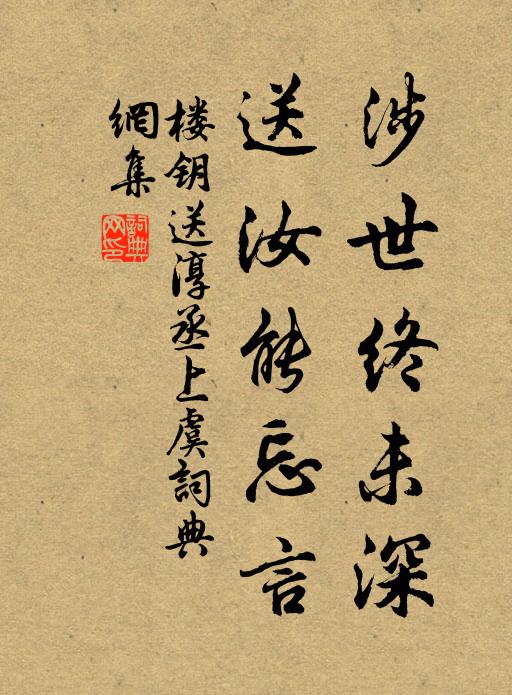 涉世终未深
送汝能忘言
楼钥送淳丞上虞詞典
網集
詞典网印